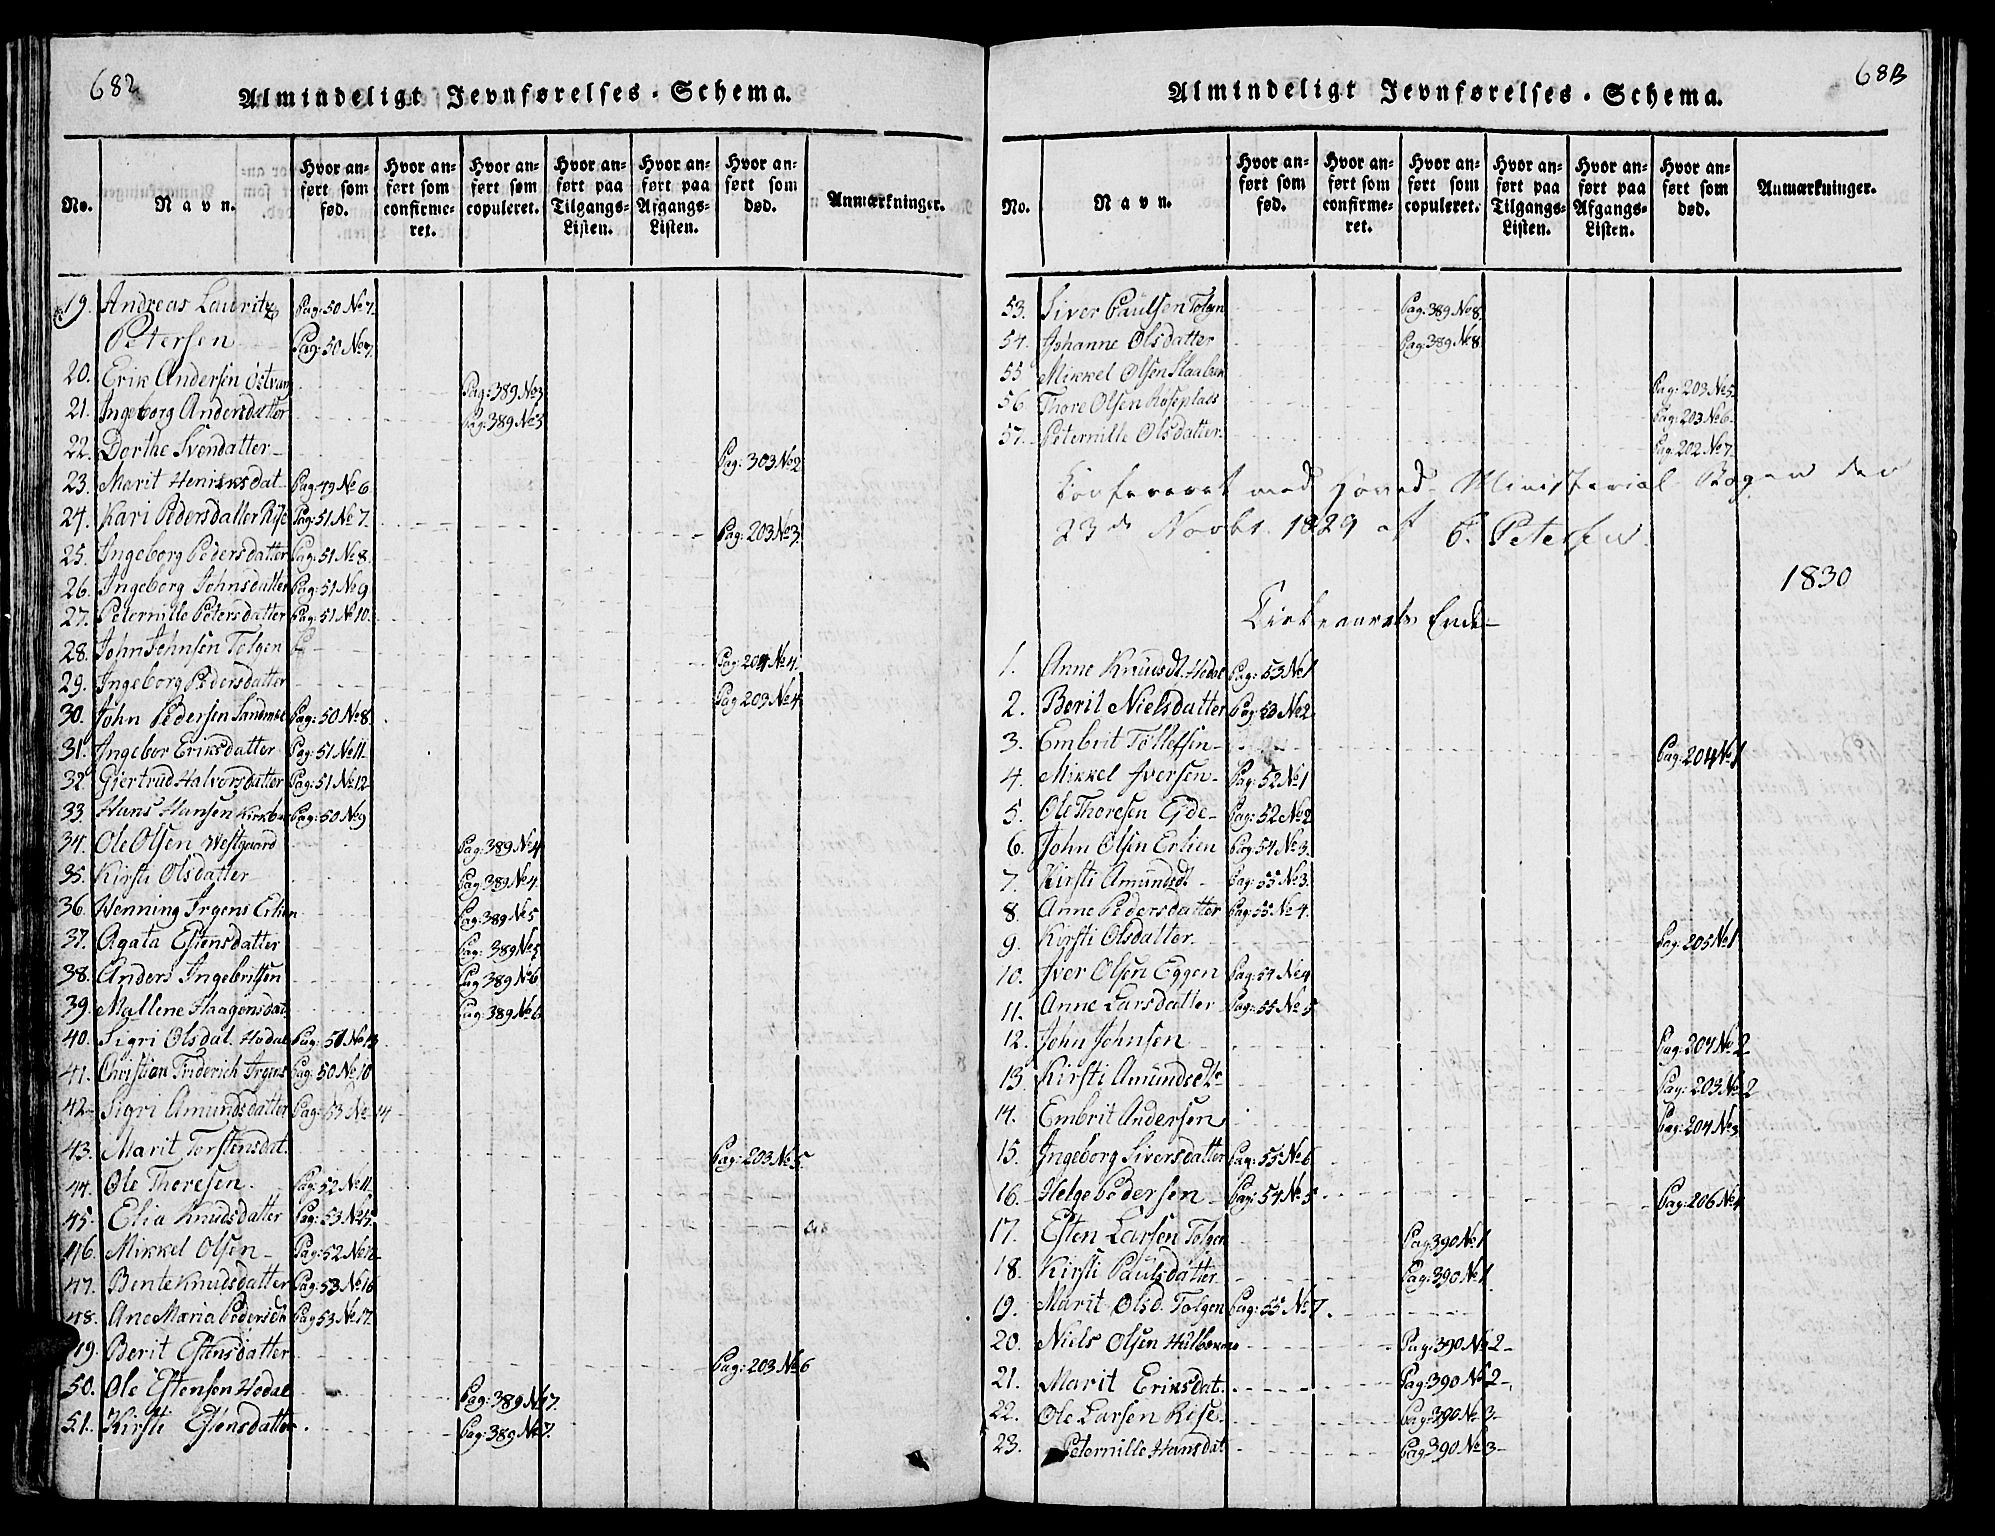 682
Almindeligt Jevnførelses-Schema.
No. Navn. Hvor anført som fød. Hvor anført som confirmeret. Hvor anført som copuleret. Hvor anført paa Tilgangs-Listen. Hvor anført paa Afgangs-Listen. Hvor anført som død. Anmærkninger.
19. Andreas Lauritz Pag: 50 No 7.
Petersen Pag: 50 No 7.
20. Erik Andersen Østvang Pag: 389 No 3
21. Ingeborg Andersdatter Pag: 389 No 3
22. Dorthe Svendatter Pag: 303 No 2
23. Marit Henriksdat Pag: 49 No 6
24. Kari Pedersdatter Rise Pag: 51 No 7. Pag: 203 No 3.
25. Ingeborg Pedersdatter Pag: 51 No 8.
26. Ingeborg Johnsdatter Pag: 51 No 9
27. Peternille Petersdatter Pag: 51 No 10.
28. John Johnsen Tolgen Pag: 204 No 4.
29. Ingeborg Pedersdatter Pag: 203 No 4
30. John Pedersen Pag: 50 No 8.
31. Ingebor Eriksdatter Pag: 51 No 11
32. Gjertrud Halvorsdatter Pag: 51 No 12
33. Hans Hansen Pag: 50 No 9
34. Ole Olsen Westgaard Pag: 389 No 4
35. Kirsti Olsdatter Pag: 389 No 4.
36. Henning Irgens Erlien Pag: 389 No 5
37. Agata Estensdatter Pag: 389 No 5
38. Anders Ingebritsen Pag: 389 No 6
39. Mallene Haagensdat. Pag: 389 No 6
40. Sigri Olsdat. Hodal Pag: 51 No 13
41. Christian Friderich Irgens Pag: 50 No 10
42. Sigri Amundsdatter Pag: 53 No 14
43. Marit Torstensdat. Pag: 203 No 5
44. Ole Thoresen. Pag: 52 No 11.
45. Elia Knudsdatter Pag: 53 No 15
46. Mikkel Olsen Pag: 52 No 12
47. Bente Knudsdatter Pag: 53 No 16
48. Ane Maria Pedersdt Pag 53 No 17.
49. Berit Estensdatter Pag: 203 No 6
50. Ole Estensen Hodal Pag: 389 No 7.
51. Kirsti Estensdatter Pag: 389 No 7.
683
Almindeligt Jevnførelses-Schema.
No. Navn. Hvor anført som fød. Hvor anført som confirmeret. Hvor anført som copuleret. Hvor anført paa Tilgangs-Listen. Hvor anført paa Afgangs-Listen. Hvor anført som død. Anmærkninger.
53. Siver Paulsen Tolgen Pag: 389 No 8.
54. Johanne Olsdatter Pag: 389 No 8
55 Mikkel Olsen Pag: 203 No 5
56 Thore Olsen Pag: 203 No 6
57. Peternille Olsdatter. Pag. 202 No 7
Confereret med Hoved-Ministerial Bogen den
23de Novbr. 1829 af Petersen.
1830
Kirkeaarets Ende
1. Anne Knudsdt. Hodal Pag: 53 No 1
2. Beril Nielsdatter Pag: 53 No 2
3. Embrit Tollefsen Pag: 204 No 1
4. Mikkel Iversen Pag: 52 No 1
5. Ole Thoresen Eide Pag: 52 No 2
6. John Olsen Erlien Pag 54 No 3.
7. Kirsti Amundsdt Pag: 55 No 3.
8. Anne Pedersdatter Pag: 55 No 4.
9. Kirsti Olsdatter. Pag: 205 No 1
10. Iver Olsen Eggen Pag: 54 No 4
11. Anne Larsdatter Pag: 55 No 5
12. John Johnsen Pag: 204 No 2
13 Kirsti Amundsdtr Pag: 203 No 2
14. Embrit Andersen Pag: 204 No 3
15. Ingeborg Siversdatter Pag: 55 No 6
16. Helge Pedersen Pag: 54 No 5. Pag: 206 No 4
17. Esten Larsen Tolgen Pag 390 No 1
18. Kirsti Paulsdatter Pag: 390 No 1.
19. Marit Olsd. Tolgen Pag: 55 No 7.
20. Niels Olsen Pag: 390 No 2
21. Marit Eriksdat. Pag: 390 No 2
22. Ole Larsen Rise. Pag: 390 No 3
23. Peternille Hansdat Pag 390 No 3